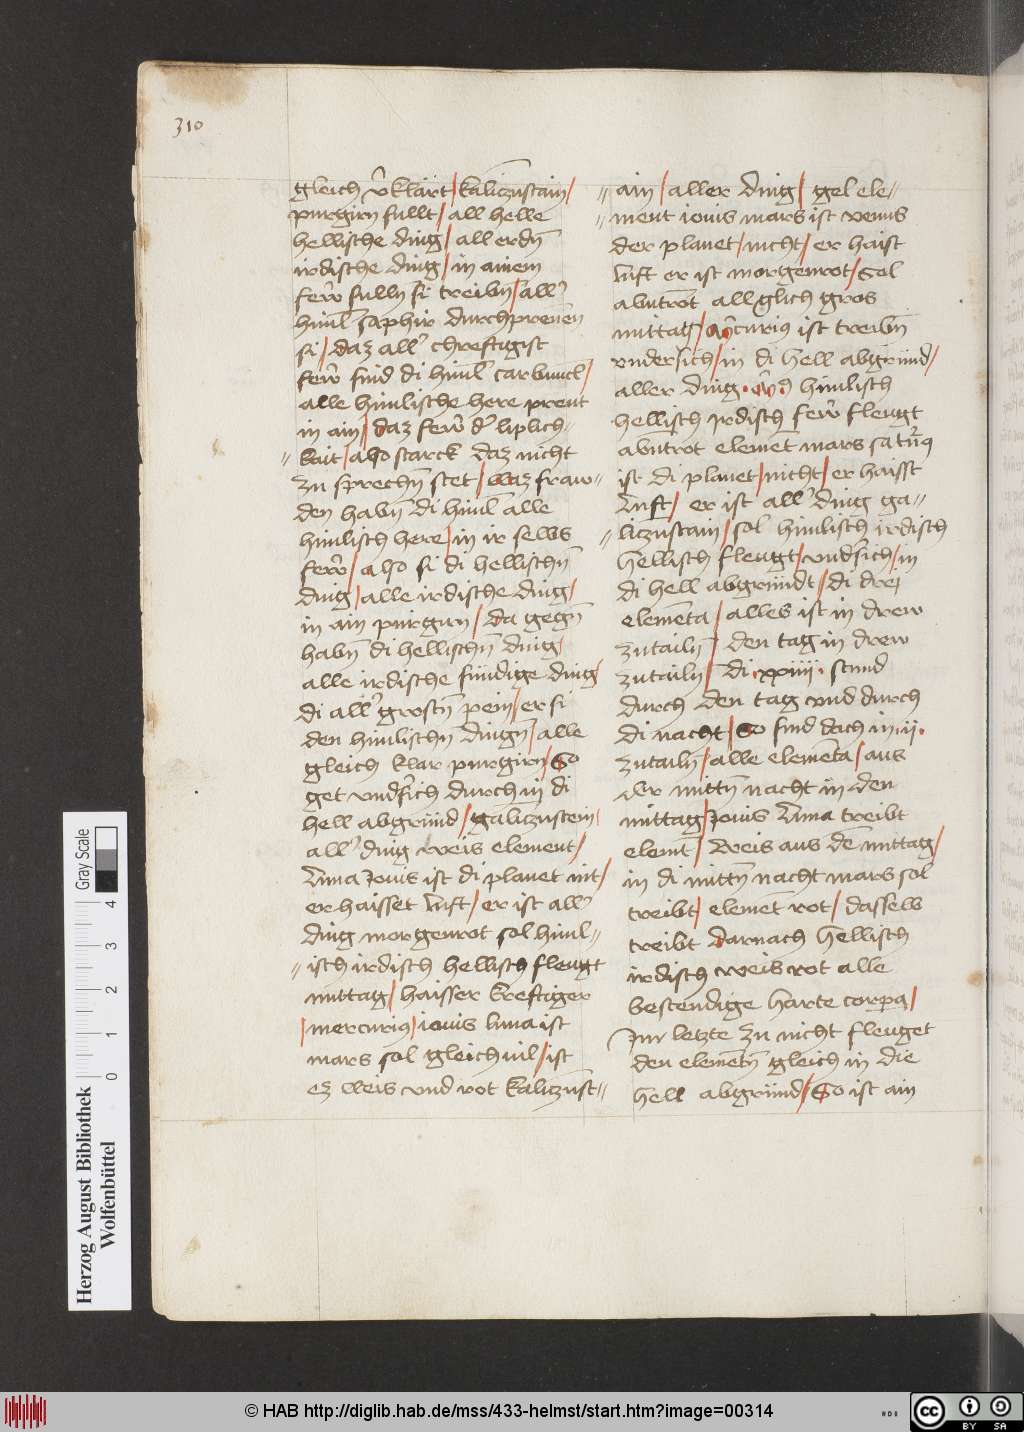 310
gleich v̄klärt / kalitzenstain /
purgirn fullt / all helle
hellische ding / all erdn̄
irdische ding / in ainem
few̄r fulln si treibn / all'
himl̄ saphir durchprenēn
si / daz all' chreftigist
few̄r sind di himl̄ carbuncl /
alle himlische here prent
in ain / daz few̄r d' liplich=
" kait / also starck daz nicht
zu sprechn̄ stet / waz fraw=
den habn̄ di himl̄ alle
himlisch here / in ir selbs
few̄r / also si di hellischn̄
ding / alle irdische ding /
in ain purgirn / da gegn̄
habn̄ di hellischn̄ ding
alle irdische sündige ding /
di all' grostn̄ pein / er si
den himlischn̄ dingn̄ / alle
gleich klar purgirn / So
get vnd'sich durch in di
hell abgründ / galitzenstein /
all' ding weis element /
Luna Jouis ist di planet nit /
er haisset luft / er ist all'
ding morgenrot sol himl=
" isch irdisch hellisch fleugt
mittag / haisser kreftiger
/ mercurius / iouis luna ist
mars sol gleich vil / ist
ez weis vnd rot kalitzenst=
" ain / aller ding / gel ele=
" ment iouis mars ist venus
der planet / nicht / er haist
luft er ist morgenrot / Sol
abntrot all glich gros
mittag / m̄curius ist treibn̄
vndersich / in di hell abgründ /
aller ding himlisch
hellisch irdisch few̄r fleugt
abntrot elemet mars satn̄us
ist di planet / nicht / er haisst
Luft / er ist all' ding ga=
" litzenstain / sol himlisch irdisch
hellisch fleugt / vnd'sich / in
di hell abgründt / di drei
elemēta / alles ist in drew
zutailn̄ / den tag in drew
zutailn̄ / di . xxiiii . stund
durch den tag vnd durch
di nacht / So sind doch in . ij .
zutailn̄ / alle elemēta / aus
der mittn̄ nacht in den
mittag / Jouis Luna treibt
elemt̄ / weis aus dē mittag /
in di mittn̄ nacht mars sol
treibt / elemēt rot / dasselb
treibt darnach hellisch
irdisch weis rot alle
bestendige harte corpa /
Zur letzte zu nicht fleuget
den elemētn̄ gleich in die
hell abgründ / So ist ain
Gray Scale
0 1 2 3 4
Herzog August Bibliothek
Wolfenbüttel
© HAB http://diglib.hab.de/mss/433-helmst/start.htm?image=00314
cc BY SA